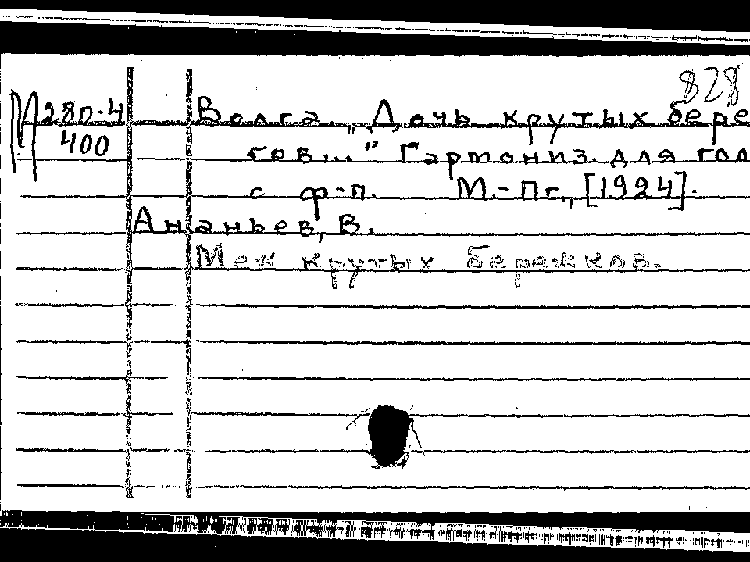 828
М 280-4 Волга. „Дочь крутых бере
400 гов..." Гармониз. для гол
с ф-п. М.-Пг., [1924].
Ананьев, В.
Меж крутых бережков.